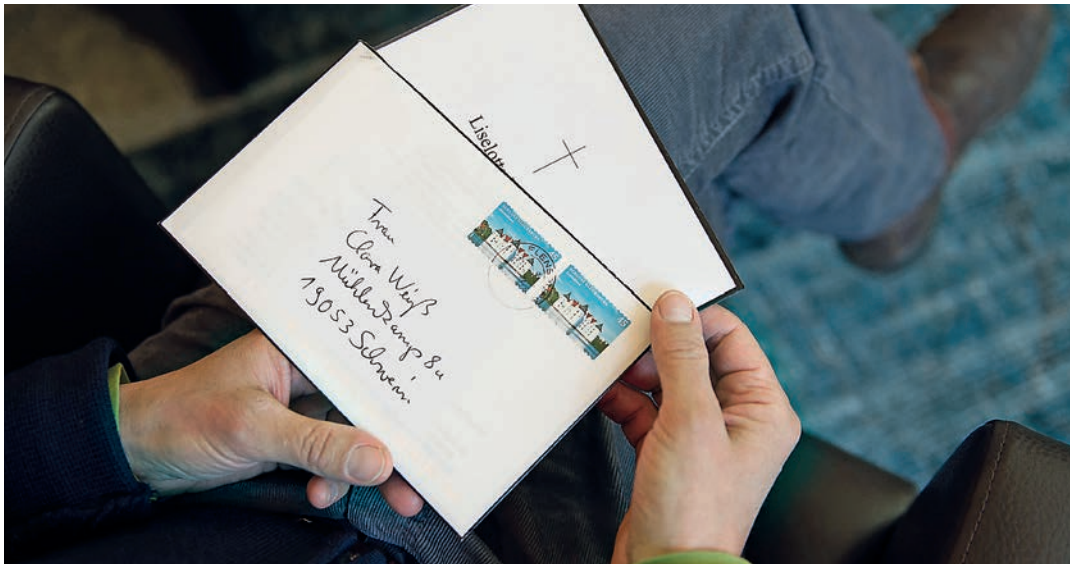 Liselott
Frau
Clara Weiß
Mühlenkamp 8a
19053 Schwerin
45